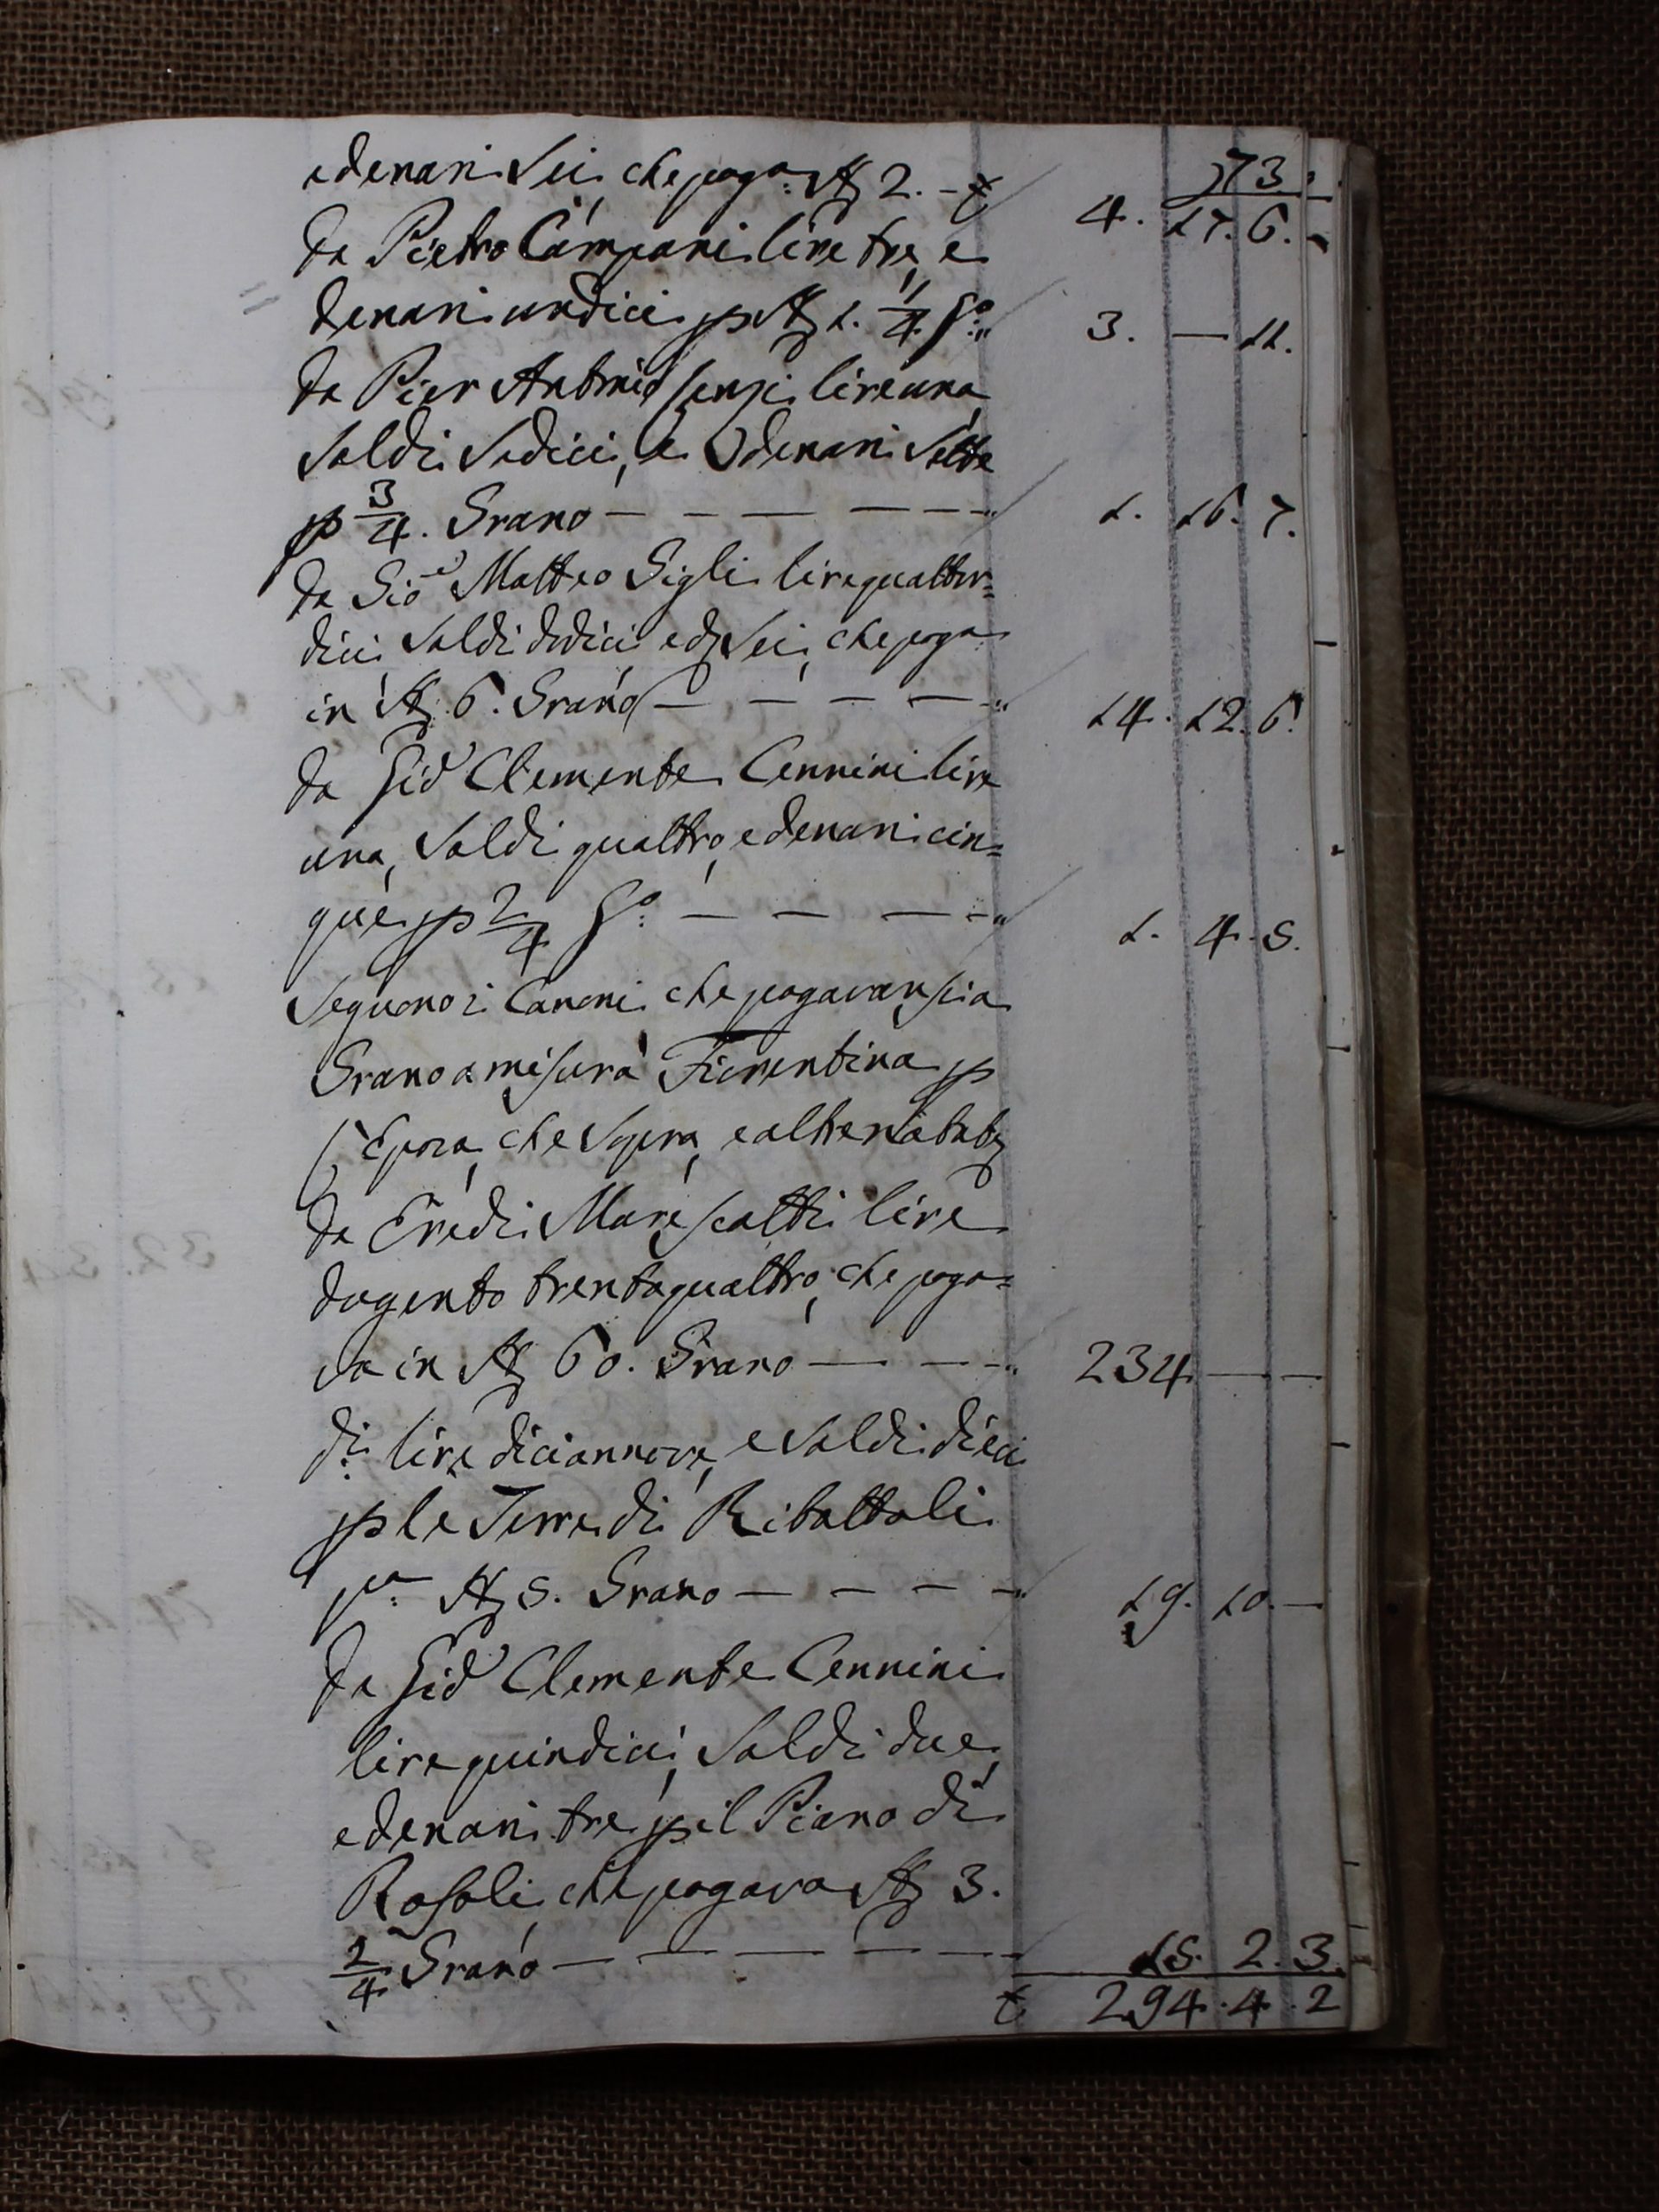 73
e denari Sei, che pag.ª St.ª 2. - £ 4. 17. 6. -
da Pietro Campani lire tre, e
denari undici p St.ª 1. 1/4 G.º " 3. — 11.
da Pier Antonio Senzi lire una
Soldi Sedici, e denari Sette
p 3/4. Grano — — — — — — " 1. 16. 7.
da Gio: Matteo Gigli lire quattor=
dici Soldi dodici e d. Sei, che paga
in St.ª 6. Grano — — — — " 14. 12. 6.
da Gio: Clemente Cennini lire
una, Soldi quattro, e denari cin=
que p 2/4 G.º — — — — " 1. 4. 5.
Seguono i Canoni che pagavansi a
Grano a misura Fiorentina p
l'Epoca, che Sopra, e
da Eredi Marescatti lire
dugento trentaquattro, che paga=
va in St.ª 60. Grano — — — " 234. — —
d.i lire diciannove, e Soldi dieci
p le Terre di Ribattoli
p.ª St.ª 5. Grano — — — — " 19. 10. —
da Gio: Clemente Cennini
lire quindici, Soldi due,
e denari tre p il Piano di
Rasoli, che pagava St.ª 3.
2/4 Grano — — — — — — 15. 2. 3.
£ 294. 4. 2